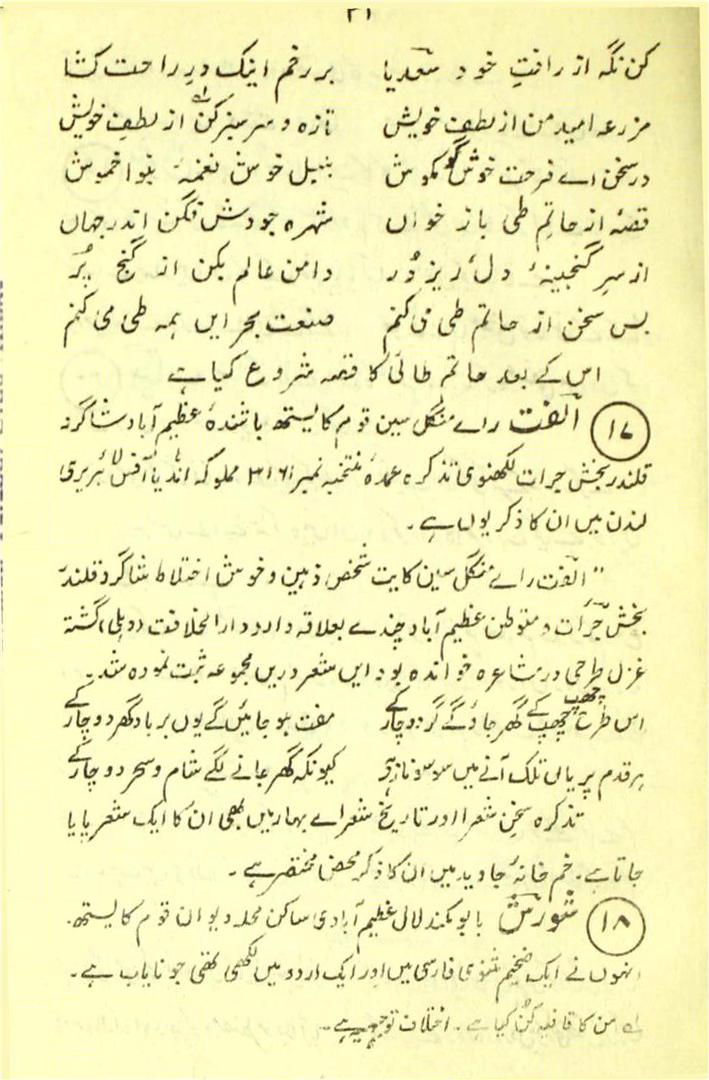 ۲۱
کن نگہ از رافتِ خود سعدیا بر رخم اینک درِ راحت کشا
مزرعہ امید من از لطفِ خویش تازہ و سرسبز کنؔ از لطفِ خویش
در سخن اے فرحت خوش گو بکوش بلبل خوش نغمۂ بنوا خموش
قصۂ از حاتمِ طی باز خواں شہرہ جودش فگن اندر جہاں
از سرِ گنجینۂ دل ریز دُر دامن عالم بکن از گنج پُر
بس سخن از حاتم طی می کنم صنعت بحر ایں ہمہ طی می کنم
اس کے بعد حاتم طائی کا قصہ شروع کیا ہے
(۱۷) الفت رائے منگل سین قوم کایستھ باشندۂ عظیم آباد شاگرد
قلندر بخش جرات لکھنوی تذکرہ عمدۂ منتخبہ نمبر ۳۱۶۱ مملوکہ انڈیا آفس لائبریری
لندن میں ان کا ذکر یوں ہے۔
"الفت رائے منگل سین کایت شخص ذہین و خوش اختلاط شاگرد قلندر
بخش جرأت و متوطن عظیم آباد چندے بعلاقہ دارد دارالخلافت (دہلی) گشتہ
غزل طرحی در مشاعرہ خواندہ بود ایں شعر دریں مجموعہ ثبت نمودہ شد۔
اس طرح چھپ چھپ کے گھر جاؤگے گر دو چار کے مفت ہو جائیں گے یوں برباد گھر دو چار کے
ہر قدم پر یاں تلک آنے میں سو سو ناز ہیں کیونکہ گھر جانے لگے شام و سحر دو چار کے
تذکرہ سخن شعرا اور تاریخ شعراے بہار میں بھی ان کا ایک شعر پایا
جاتا ہے۔ خم خانۂ جاوید میں ان کا ذکر محض مختصر ہے۔
(۱۸) شورش بابو مکند لال عظیم آبادی ساکن محلہ دیوان قوم کایستھ۔
انہوں نے ایک ضخیم مثنوی فارسی میں اور ایک اردو میں لکھی تھی جو نایاب ہے۔
لہ من کا قافیہ کن کیا ہے۔ اختلاف توجیہہ ہے۔